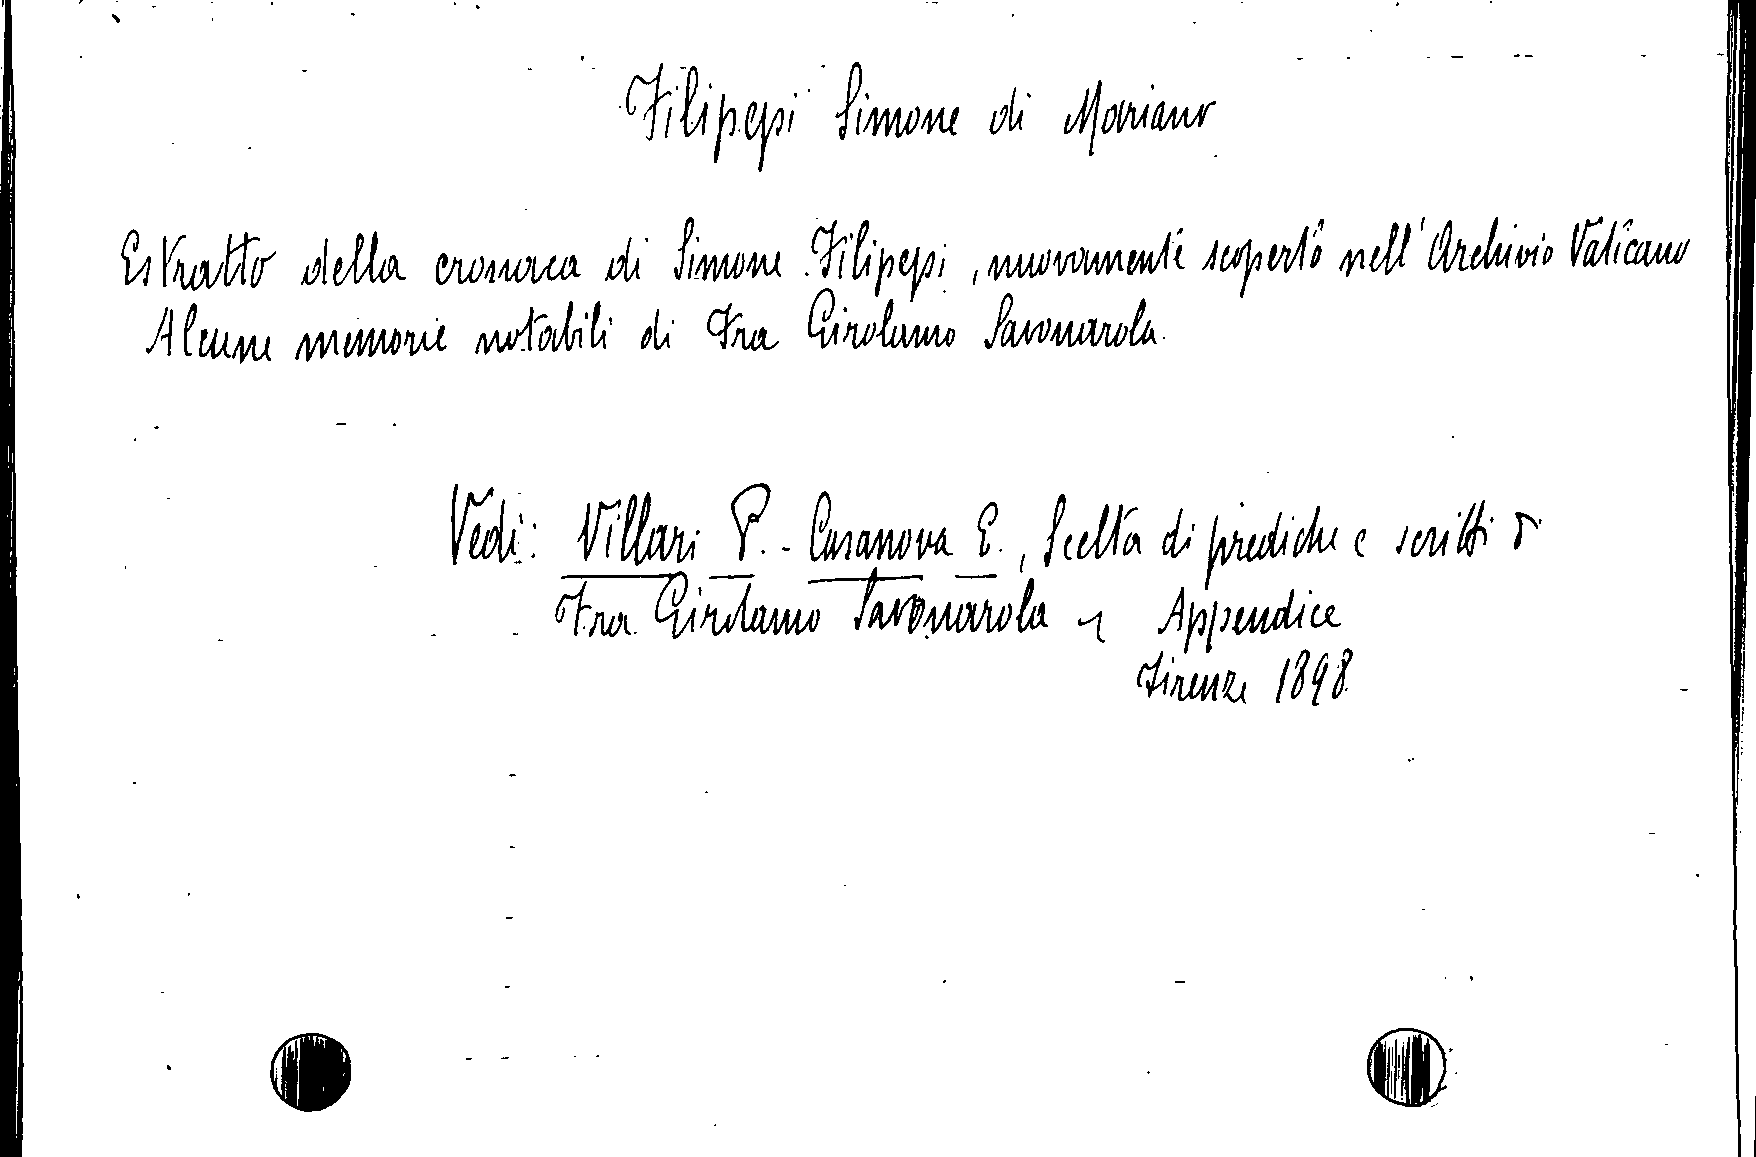 Filipepi Simone di Mariano
Estratto della cronaca di Simone Filipepi, nuovamente scoperto nell'Archivio Vaticano
Alcune memorie notabili di Fra Girolamo Savonarola.
Vedi: Villari P. - Casanova E., Scelta di prediche e scritti di
Fra Girolamo Savonarola - Appendice
Firenze 1898